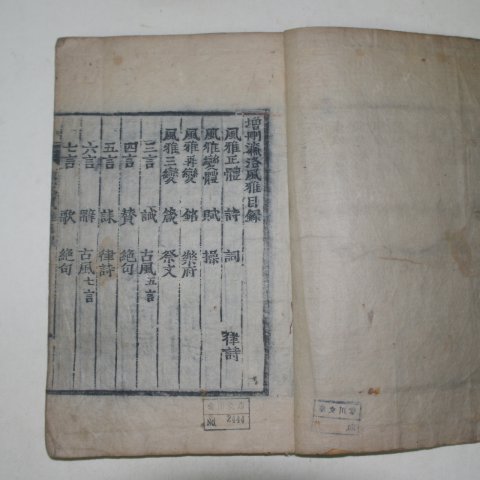 增刪濂洛風雅目錄
風雅正體 詩 詞
風雅變體 賦 操
風雅再變 銘 樂府
風雅三變 箴 祭文
三言 誡 古風五言
四言 贊 絶句
五言 誄 律詩
六言 辭 古風七言
七言 歌 絶句
律詩
2440